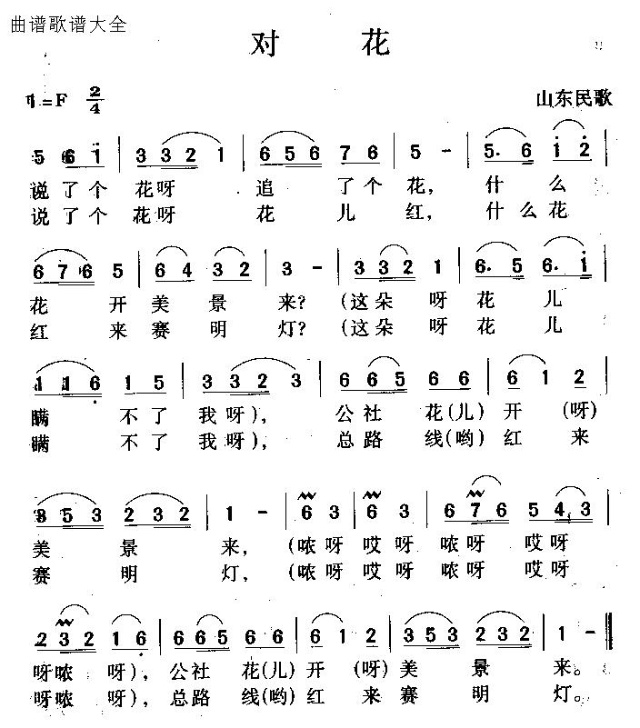 曲谱歌谱大全
对 花
1=F 2/4
山东民歌
5 6 i | 3 3 2 1 | 6 5 6 7 6 | 5 - | 5. 6 i 2 |
说了个 花呀 追 了个 花, 什 么
说了个 花呀 花 儿 红, 什么花
6 7 6 5 | 6 4 3 2 | 3 - | 3 3 2 1 | 6. 5 6. i |
花 开 美 景 来? (这朵 呀 花 儿
红 来 赛 明 灯? (这朵 呀 花 儿
1 1 6 1 5 | 3 3 2 3 | 6 6 5 6 6 | 6 1 2 |
瞒 不了 我呀), 公社 花(儿) 开 (呀)
瞒 不了 我呀), 总路 线(哟) 红 来
3 5 3 2 3 2 | 1 - | 6 3 6 3 | 6 7 6 5 4 3 |
美 景 来, (哝呀 哎呀 哝呀 哎呀
赛 明 灯, (哝呀 哎呀 哝呀 哎呀
2 3 2 1 6 | 6 6 5 6 6 | 6 1 2 | 3 5 3 2 3 2 | 1 - ‖
呀哝 呀), 公社 花(儿)开 (呀)美 景 来。
呀哝 呀), 总路 线(哟)红 来赛 明 灯。